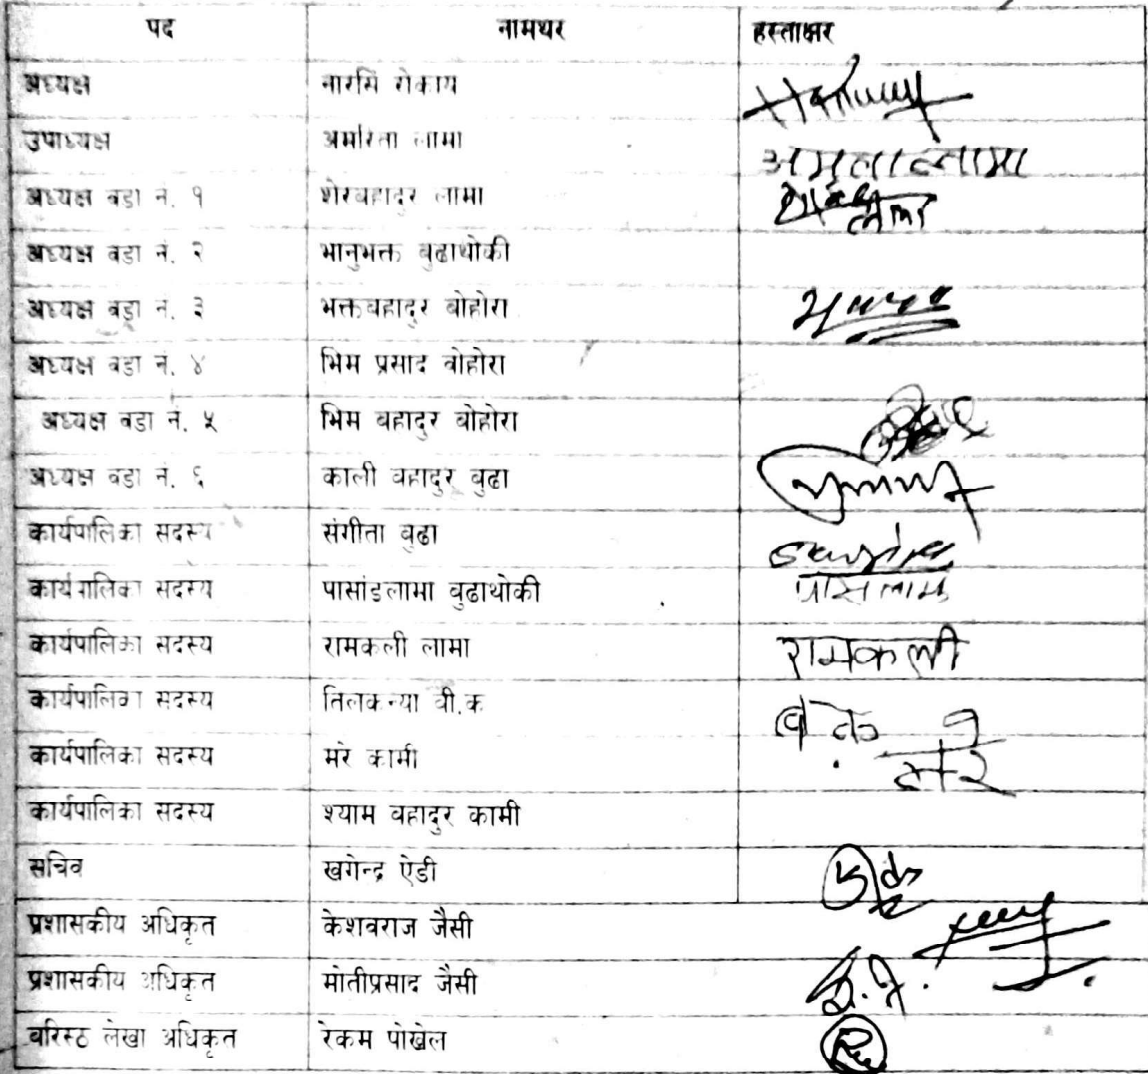 पद नामथर हस्ताक्षर
अध्यक्ष नारसि रोकाय
उपाध्यक्ष अमरिता लामा अमृता लामा
अध्यक्ष वडा नं. १ शेरबहादुर लामा
अध्यक्ष वडा नं. २ भानुभक्त बुढाथोकी
अध्यक्ष वडा नं. ३ भक्तबहादुर बोहोरा
अध्यक्ष वडा नं. ४ भिम प्रसाद वोहोरा
अध्यक्ष वडा नं. ५ भिम बहादुर बोहोरा
अध्यक्ष वडा नं. ६ काली वहादुर बुढा
कार्यपालिका सदस्य संगीता बुढा
कार्यपालिका सदस्य पासांडलामा बुढाथोकी
कार्यपालिका सदस्य रामकली लामा रामकली
कार्यपालिका सदस्य तिलकन्या वी.क
कार्यपालिका सदस्य मरे कामी
कार्यपालिका सदस्य श्याम वहादुर कामी
सचिव खगेन्द्र ऐडी
प्रशासकीय अधिकृत केशवराज जैसी
प्रशासकीय अधिकृत मोतीप्रसाद जैसी
वरिस्ठ लेखा अधिकृत रेकम पोखेल